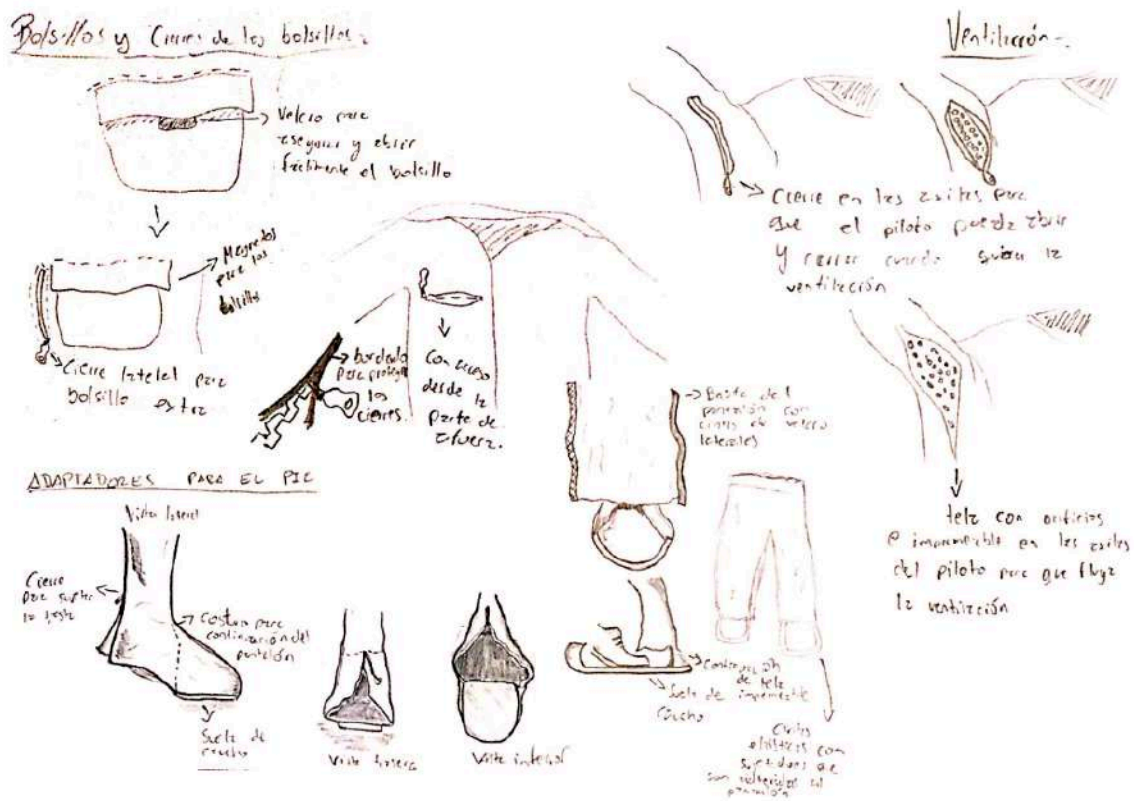 Bolsillos y Cierres de los bolsillos.
Velcro para
asegurar y abrir
fácilmente el bolsillo
para los
bolsillos
Cierre lateral para
bolsillo extra
bordado
para proteger
los
cierres.
Con acceso
desde la
parte de
afuera.
Ventilación
Cierre en las axilas para
que el piloto pueda abrir
y cerrar cuando quiera la
ventilación
tela con orificios
e impermeable en las axilas
del piloto para que fluya
la ventilación
pantalón con
cintas de velcro
laterales
ADAPTADORES PARA EL PIE
Vista lateral
Cierre
para sujetar
la
Costura para
continuación del
pantalón
Suela de
caucho
Vista trasera
Vista inferior
Continuación
de tela
Suela de impermeable
caucho
elásticas con
sujetadores que
son al
pantalón